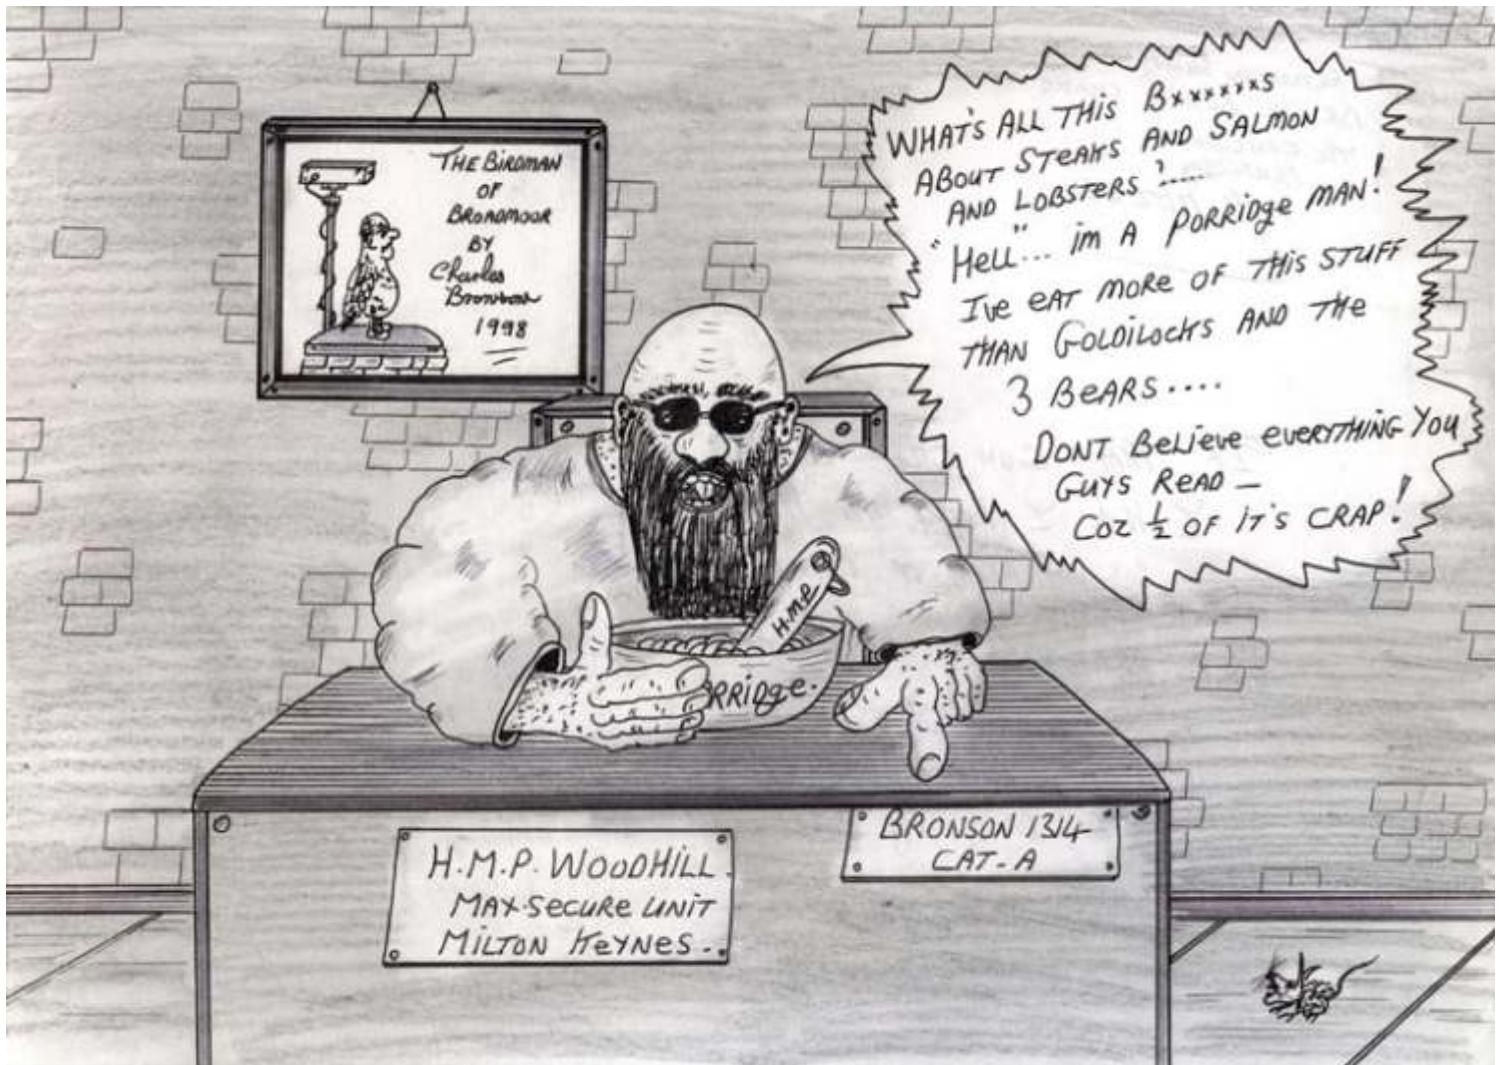 THE BIRDMAN
OF
BROADMOOR
BY
Charles
Bronson
1998
WHAT'S ALL THIS Bxxxxxxs
ABOUT STEAKS AND SALMON
AND LOBSTERS ?.....
"HELL"... im A PORRIDGE MAN!
I'VE EAT MORE OF THIS STUFF
THAN GOLDILOCKS AND THE
3 BEARS....
DONT BELIEVE EVERYTHING YOU
GUYS READ —
COZ ½ OF IT'S CRAP!
H.M.P.
RRIDGE.
H.M.P. WOODHILL.
MAX-SECURE UNIT
MILTON KEYNES.
BRONSON 1314
CAT-A